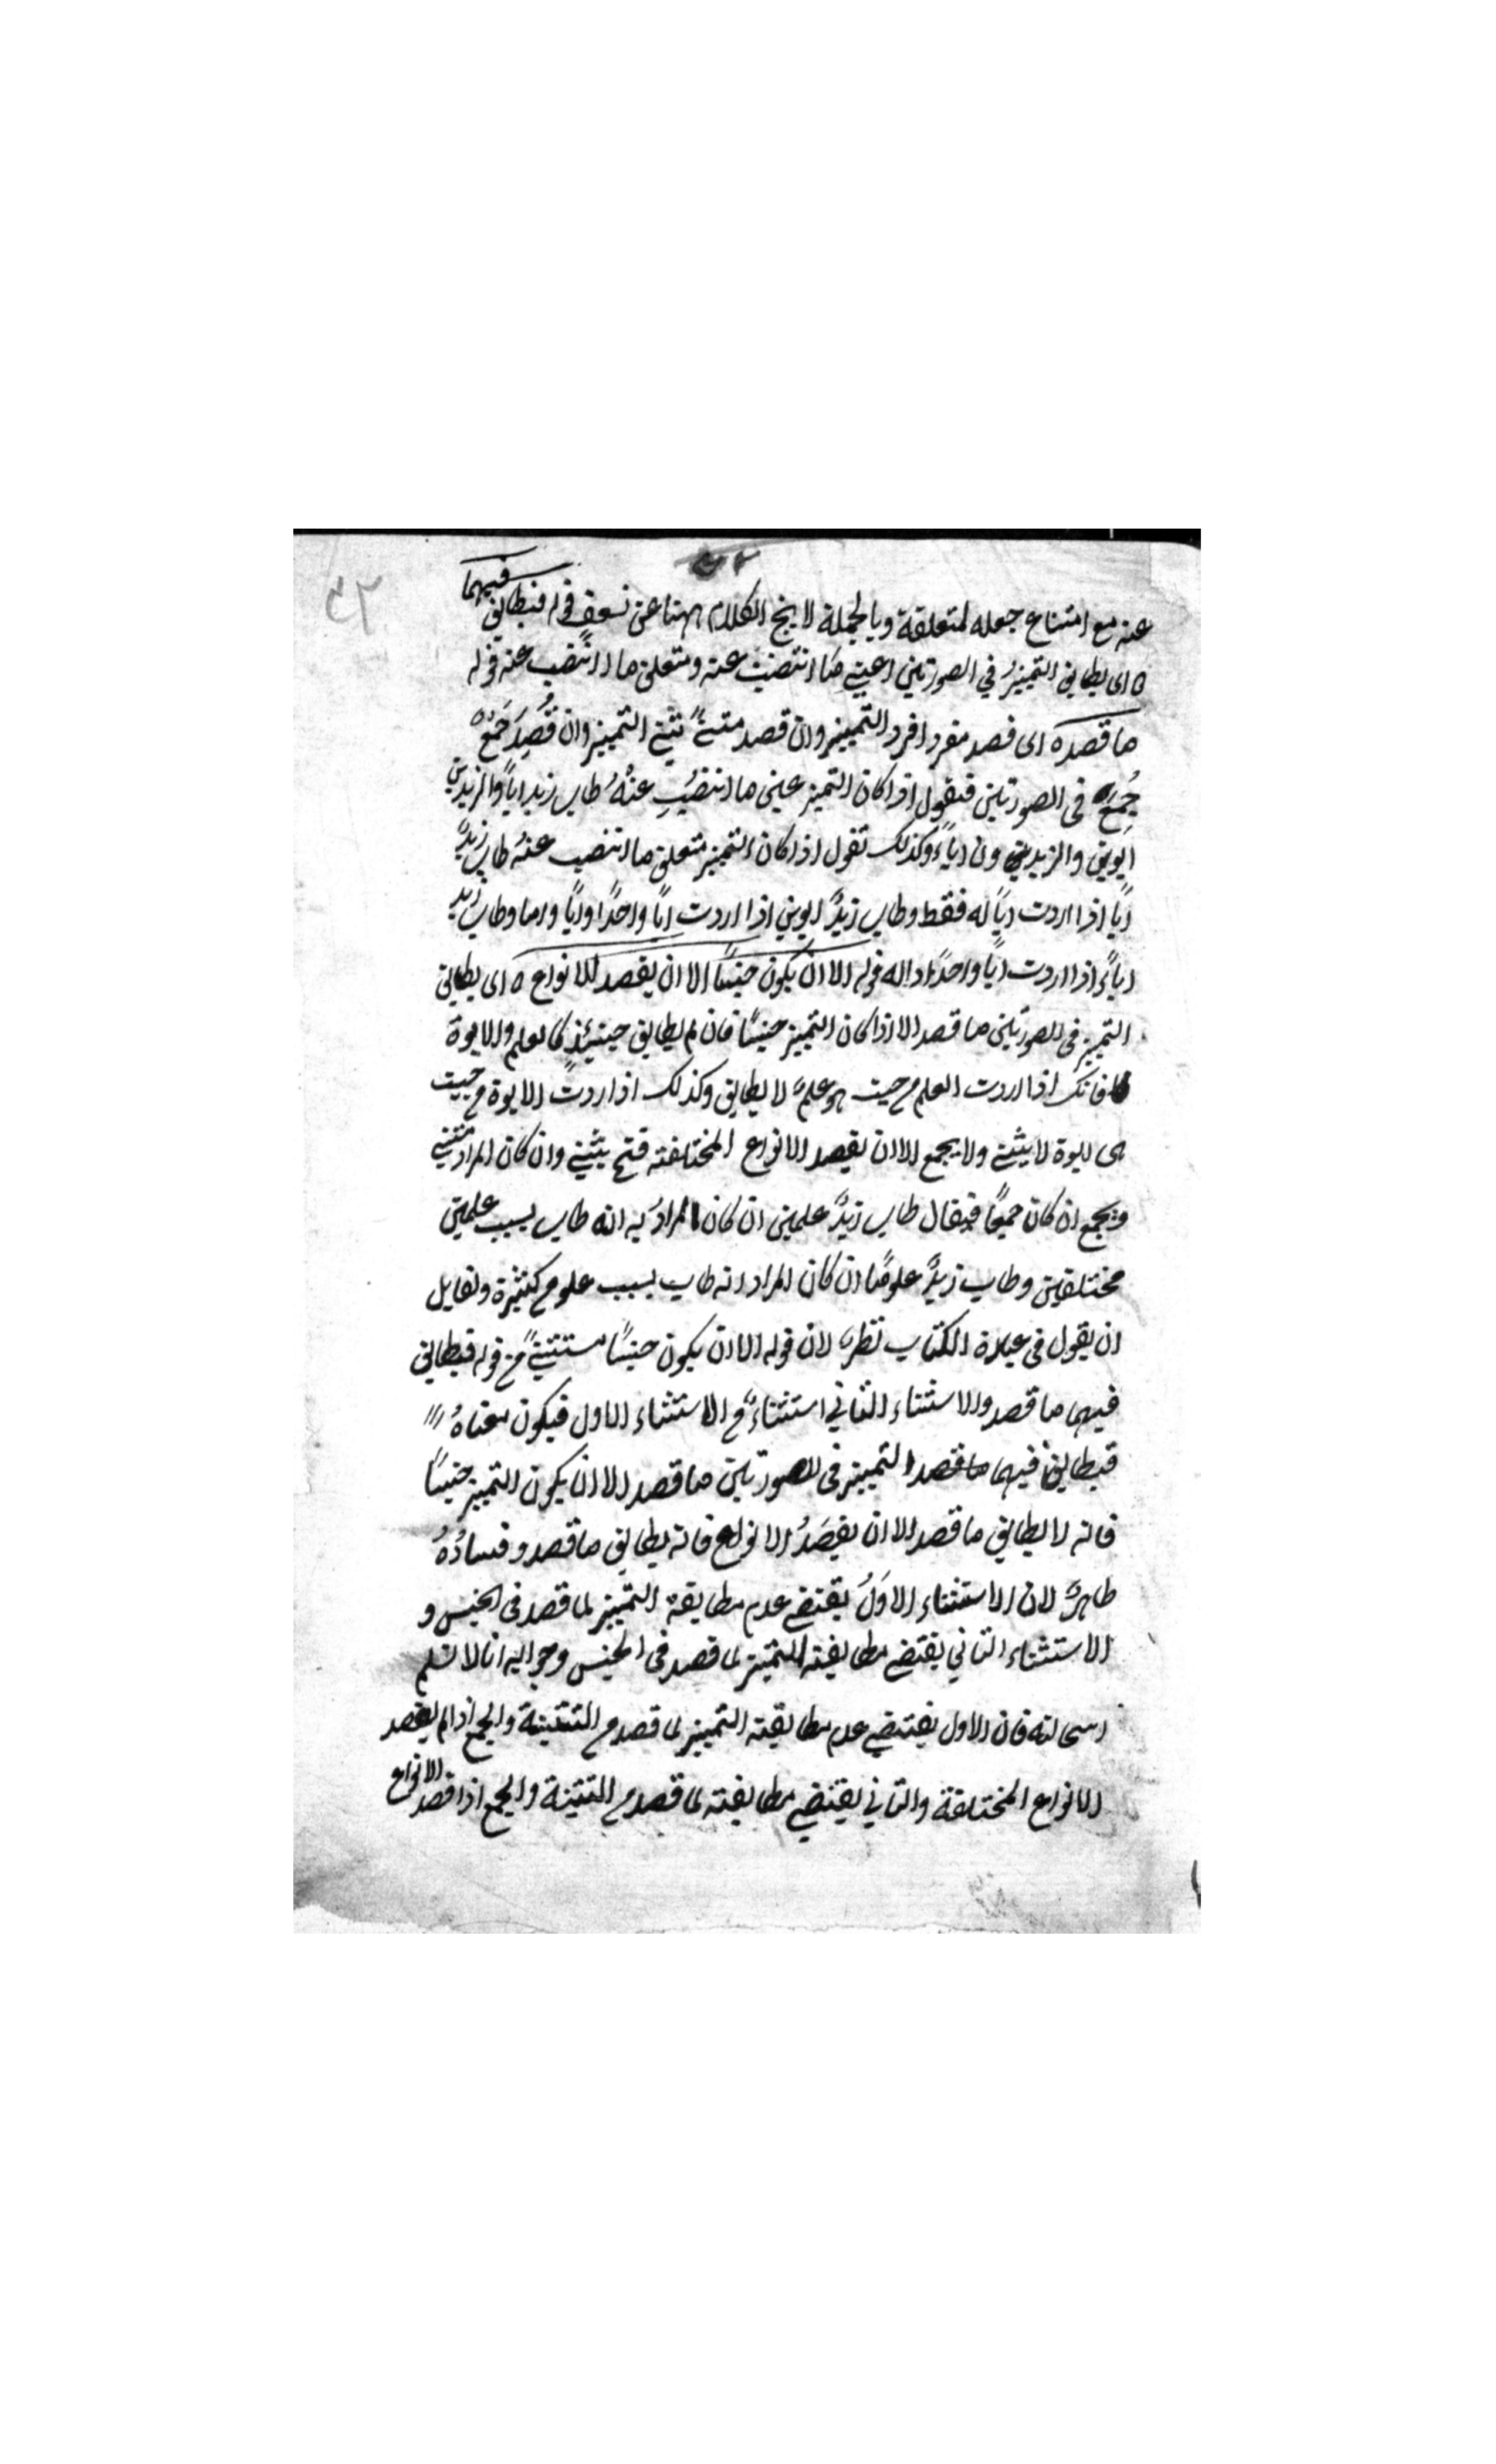 ٤٢
عنه مع امتناع جعله لمتعلقة وبالجملة لا ينج الكلام ههنا عن تسعف قوله فيطابق فيهما
ه اى يطابق التمييزُ في الصورتين اعنى ما انتصب عنه ومتعلق ما انتصب عنه قوله
ما قصد ه اى قصد مفردا فرد التمييز وان قصد مثنى ثنى التمييز وان قُصِدَ جَمْعٌ
جُمِعَ فى الصورتين فيقول اذا كان التميز عين ما انتصب عنْهُ طاب زيد اباً والزيدين
ابوين والزيدين ون اباءً وكذلك تقول اذا كان التميز متعلق ما انتصب عنهُ طاب زيدٌ
اباً اذا اردت اباً له فقط وطاب زيدٌ ابوين اذا اردت اباً واحدًا واباً واما وطاب زيد
اباءً اذا اردت اباً واحدًا دا له قوله الا ان يكون جنسًا الا ان يقصد الانواع ه اى يطابق
التميز فى الصورتين ما قصد الا اذا كان التميز جنسًا فان لم يطابق حينئذٍ كالعلم والابوة
فانك اذا اردت العلم من حيث هو علمٌ لا يطابق وكذلك اذا اردت الابوة من حيث
هى ابوة لا يثنى ولا يجمع الا ان يقصد الانواع المختلفته فتح يثنى وان كان المراد مثنى
ويجمع ان كان جميعًا فيقال طاب زيدٌ علمين ان كان المرادُ به انه طاب بسبب علمين
مختلفين وطاب زيدٌ علومًا ان كان المراد انه طاب بسبب علوم كثيرة ولقايل
ان يقول فى عبارة الكتاب نظرٌ لان قوله الا ان يكون جنسًا مستثنىً من قوله فيطابق
فيهما ما قصد والاستثناء الثاني استثناءٌ من الاستثناء الاول فيكون معناهُ
فيطابق فيهما ما قصد التمييز فى الصورتين ما قصد الا ان يكون التميز جنسًا
فانه لا يطابق ما قصد الا ان يقصَدُ الانواع فانه يطابق ما قصد وفسادُهُ
ظاهرٌ لان الاستثناء الاوَلُ يقتضى عدم مطابقة التمييز لما قصد فى الجنس و
الاستثناء الثاني يقتضى مطابقته التميز لما قصد فى الجنس وجوابه انا لا نسلم
استحالته فان الاول يقتضى عدم مطابقته التمييز لما قصد من التثنية والجمع اذا لم يقصد
الانواع المختلفة والثاني يقتضى مطابقته لما قصد من التثنية والجمع اذا قصد الانواع